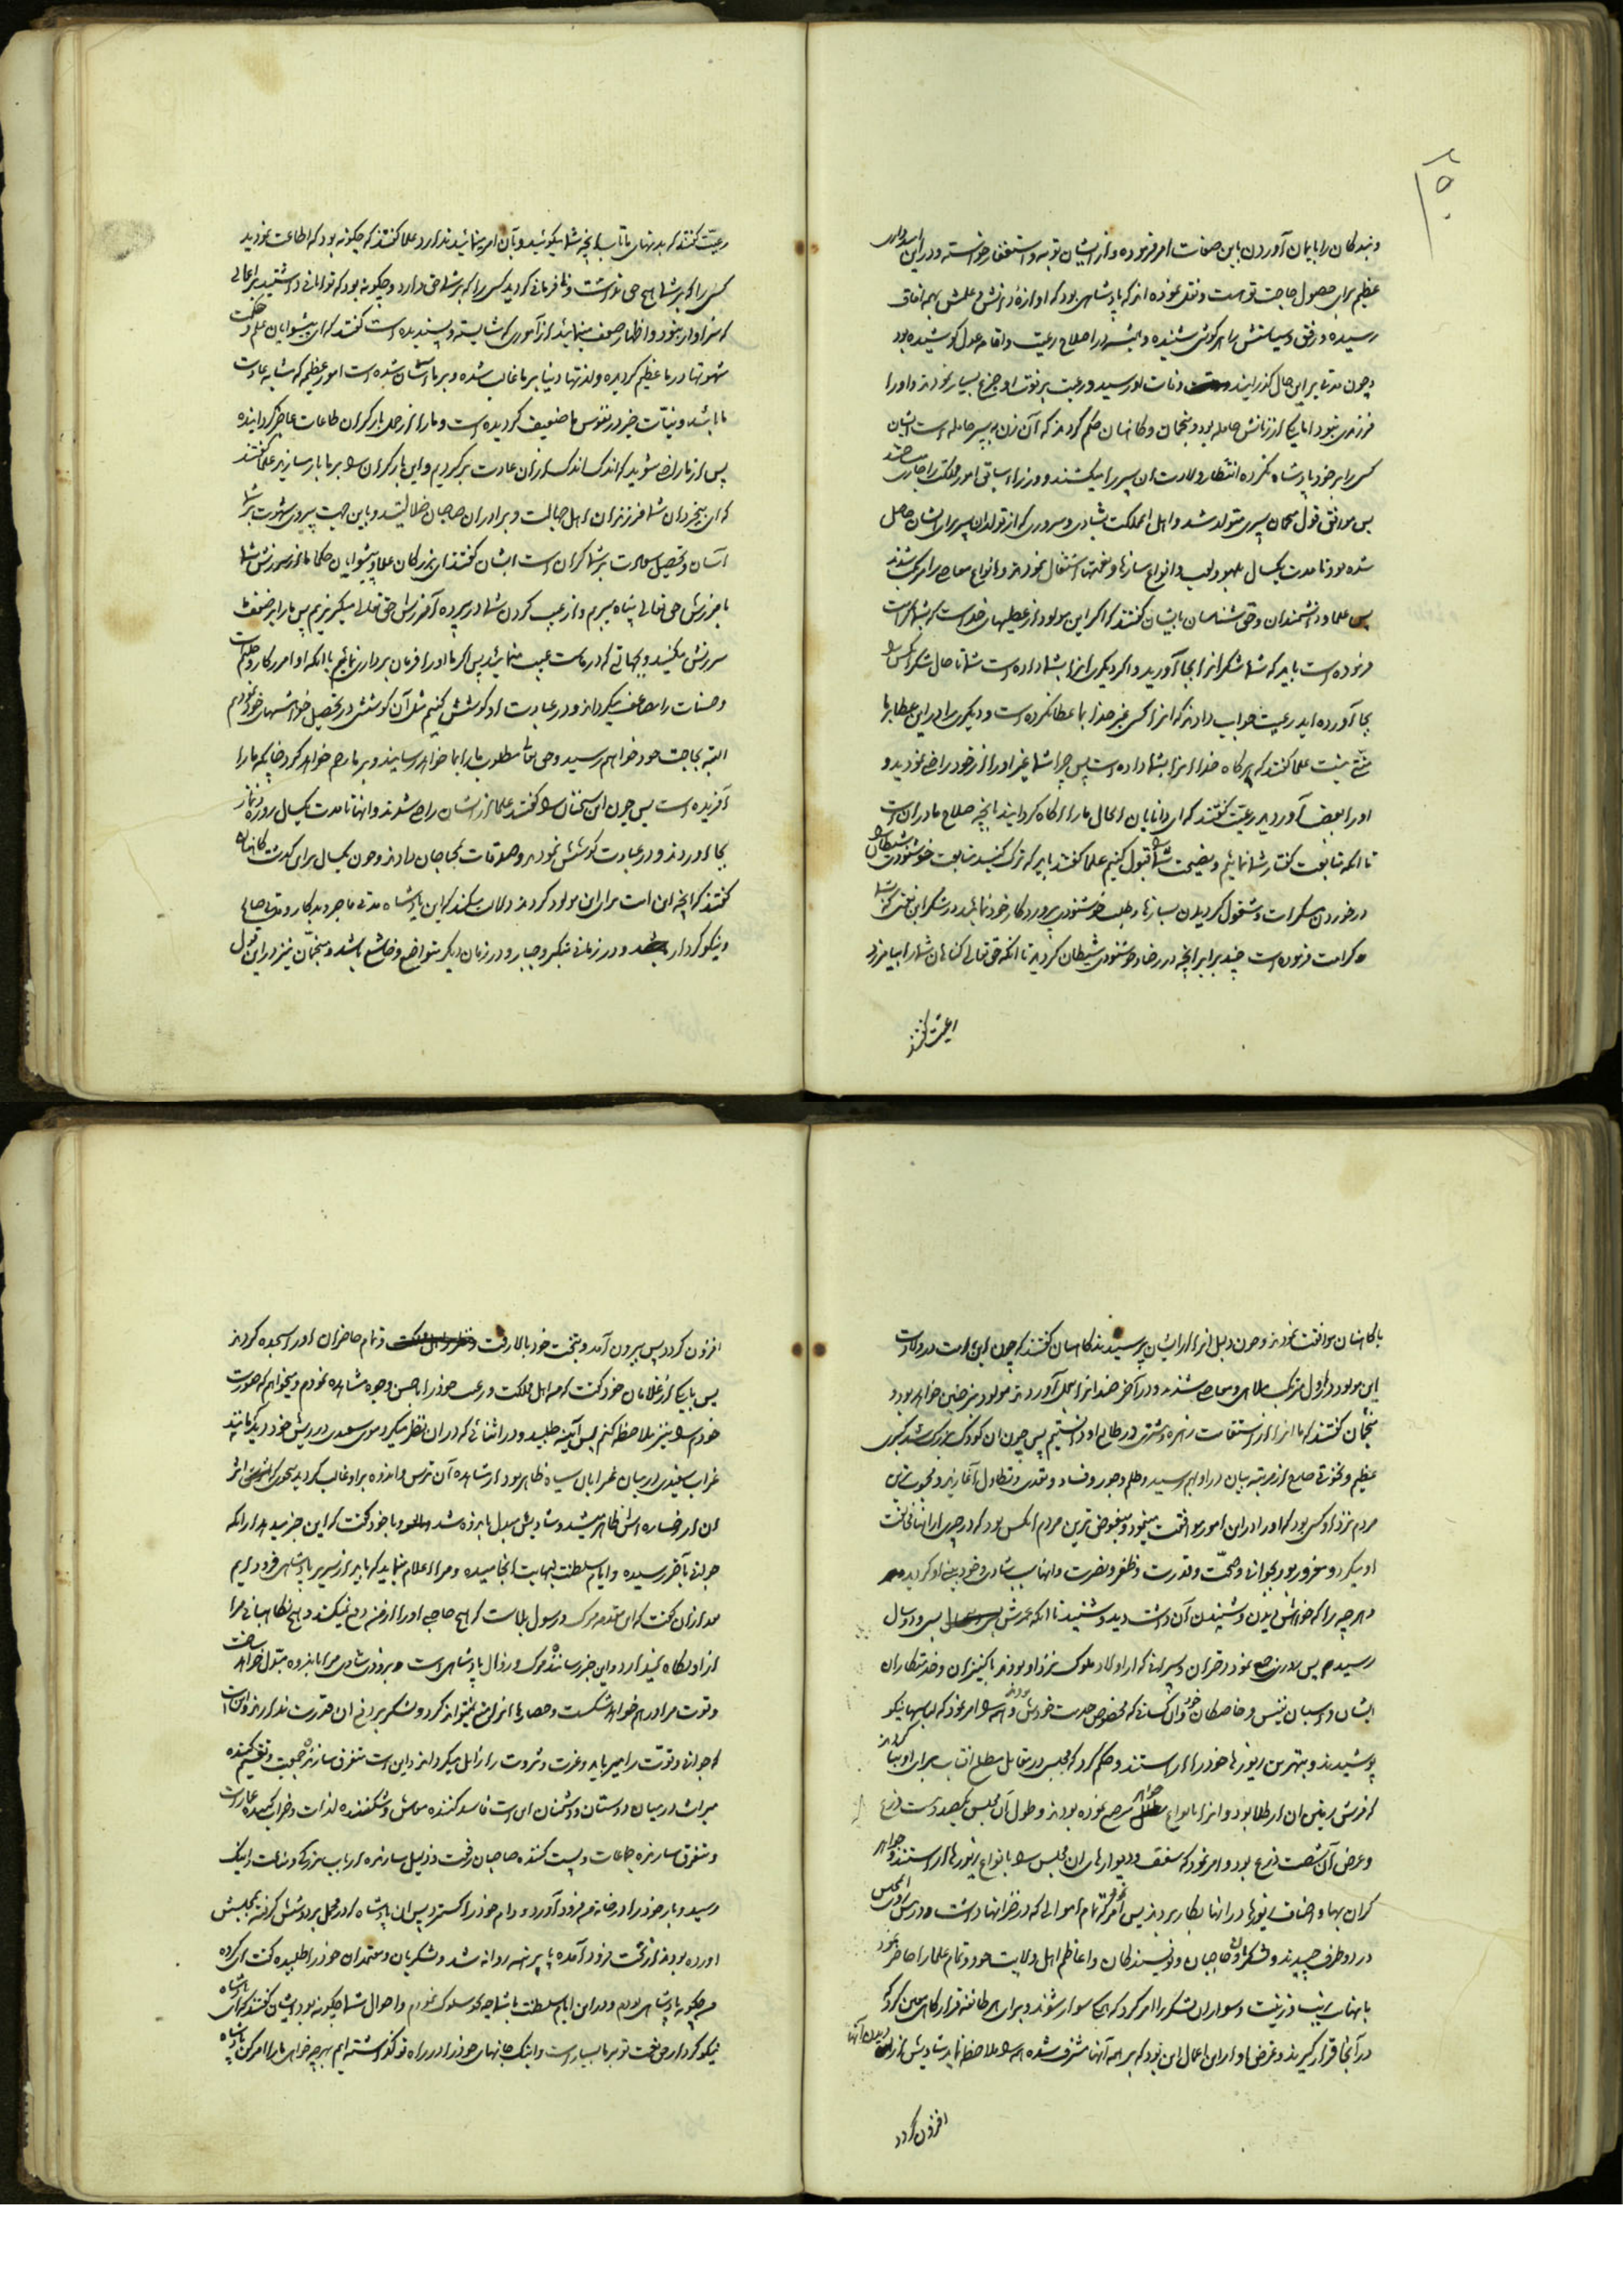 و بندگان را بایمان آوردن باین صفات امر فرموده و از ایشان توبه و استغفار خواسته و در این
عظیم برای حصول حاجت تو هست و نقل نموده اند که پادشاهی بود که آوازهٔ دانش و علمش بهمه آفاق
رسیده و رفق و سیاستش را هر گوش شنیده و همیشه در اصلاح رعیت و اقامه عدل کوشیده بود
و چون مدتها بر این حال گذرانید وفات او رسید و رعیت بر فوت او جزع بسیار نمودند و او را
فرزندی نبود اما یکی از زنانش حامله بود و منجمان و کاهنان حکم کردند که آن زن به پسر حامله است ایشان
کسی را بر خود پادشاه نکرده انتظار ولادت ان پسر را میکشیدند و وزراء سابق امور مملکت را جاری میداشتند
پس موافق قول منجمان پسری متولد شد و اهل المملکت بشادی و سروری که از تولد ان پسر برای ایشان حاصل
شده بود تا مدت یکسال بلهو و لعب و انواع سازها و نغمها اشتغال نمودند و انواع معاصی را مرتکب شدند
پس علما و دانشمندان و حق شناسان بایشان گفتند که اگر این مولود از عطیهای خداست که بشما کرامت
فرموده است باید که شما شکر انرا بجا آورید و اگر دیگری انرا بشما داده است شما تا حال شکر آنکس را
بجا آورده اید رعیت جواب دادند که انرا کسی غیر خدا بما عطا نکرده است و دیگری را در این عطا بر ما
منتی نیست علما گفتند که هر گاه خدا انرا بشما داده است پس چرا شما غیر او را از خود راضی نمودید و
او را بغضب آوردید رعیت گفتند که ای دانایان الحال ما را آگاه گردانید بانچه صلاح ما در ان است
تا انکه متابعت گفتار شما نمائیم و نصیحت شما را قبول کنیم علما گفتند باید که ترک کنید متابعت خوشنودی شیطان را
در خوردن مسکرات و مشغول گردیدن بسازها و طلب خوشنودی پروردگار خود نمائید در شکر این نعمتی که بشما
کرامت فرموده است چند برابر انچه در رضا و خوشنودی شیطان کردید تا انکه حق تعالی گناهان شما را بیامرزد
رعیت گفتند
رعیت گفتند که بدنهای ما تاب انچه شما میگوئید و بآن امر مینمائید ندارد علما گفتند که چگونه بود که اطاعت نمودید
کسی را که بر شما هیچ حق نداشت و نافرمانی کردید کسی را که بر شما حق دارد و چگونه بود که توانائی داشتید بر اعمالی
که سزاوار نبود و اظهار ضعف مینمائید از آموری که شایسته و پسندیده است گفتند که ای پیشوایان علم و حکمت
شهوتها در ما عظیم گردیده و لذتهای دنیا بر ما غالب شده و بر ما آسان شده است امور عظیم که مشابه عادت
ما باشد و نیات خیر در نفوس ما ضعیف گردیده است و ما را از حمل بار گران طاعات عاجز گردانیده
پس از ما راضی شوید که اندک اندک از ان عادت برگردیم و این بار گران را بر ما بار مسازید علما گفتند
که ای بیخردان شما فرزندان اهل جهالت و برادران صاحبان ضلالتید و باین جهت پیروی شهوت بر شما
آسان و تحصیل سعادت بر شما گران است ایشان گفتند ای بزرگان علما و پیشوایان حکما ما از سرزنش شما
بآمرزش حق تعالی پناه میبریم و از عیب کردن شما در پرده آمرزش حق تعالی میگریزیم پس ما را بر ضعف ما
سرزنش مکنید و بجهالتی که در ماست عیب منمائید پس اگر ما او را فرمان برداری نمائیم با انکه او امرزگار و حلیم است
و حسنات را مضاعف میگرداند و در عبادت او کوشش کنیم مثل آن کوشش که در تحصیل خواهشهای خود نمودیم
البته بحاجت خود خواهیم رسید و حق تعالی مطلوب ما را بما خواهد رسانید و بر ما رحم خواهد کرد چنانچه ما را
آفریده است پس چون این سخنان را گفتند علما از ایشان راضی شدند و انها تا مدت یکسال روزه و نماز
بجا آوردند و در عبادت کوشش نمودند و صدقات بمحتاجان دادند و چون یکسال بر این گذشت کاهنان
گفتند که انچه این امت برای این مولود کردند دلالت میکند که این پادشاه مدتی فاجر و بدکار و مدتی صالح
و نیکو کردار باشد و در زمانی متکبر و جبار و در زمان دیگر متواضع و خاشع باشد و منجمان نیز در این قول
با کاهنان موافقت نمودند و چون دلیل انرا از ایشان پرسیدند کاهنان گفتند که چون این امت در ولادت
این مولود در اول مرتکب ملاهی و معاصی شدند و در آخر ضد انرا بعمل آوردند مولود نیز چنین خواهد بود و
منجمان گفتند که ما انرا از استقامت زهره و مشتری در طالع او دانستیم پس چون ان کودک بزرگ شد تکبری
عظیم و نخوتی خارج از مرتبه بیان در او بهم رسید و ظلم و جور و فساد و تعدی و تطاول آغاز نهاد و محبوبترین
مردم نزد او کسی بود که او را در این امور موافقت مینمود و مبغوض ترین مردم انکس بود که در چیزی از انها مخالفت
او میکرد و مغرور بود بجوانی و صحت و قدرت و ظفر و نصرت و انها سبب شادی و خود بینی او گردید
و هر چه را که خواهش دیدن و شنیدن آن داشت دید و شنید تا انکه عمرش بسی و دو سال
رسید پس روزی جمع نمود دختران و پسرانی که از اولاد ملوک نزد او بودند با کنیزان و خدمتکاران
ایشان و اسبان نفیس و خاصگان خود و ان کسانی که مخصوص خدمت خودش بودند و همه را امر نمود که لباسهای نیکو
پوشیدند و بهترین زیورها خود را اراستند و حکم کرد که مجلسی در مقابل مطلع افتاب برای او بنا کردند
که فرش زمین ان از طلا بود و انرا بانواع جواهر مرصع نموده بودند و طول آن مجلس یکصد و بیست ذرع
و عرض آن شصت ذرع بود و امر نمود که سقف و دیوارهای ان مجلس را بانواع زیورها اراستند و جواهر
گران بها و اصناف زیورها در انها بکار بردند پس امر نمود که تمام اموالی که در خزانها داشت در پیش روی مجلس
در دو طرف چیدند و لشکریان و حاجبان و نویسندگان و اعاظم اهل ولایت خود و تمام علما را حاضر نمود
با نهایت زیب و زینت و سواران لشکر را امر کرد که همگی سوار شوند و برای هر طائفه قرارگاهی معین کرد که
در آنجا قرار گیرند و غرض او از این اعمال این بود که بر همه آنها مشرف شده همه را ملاحظه نماید شادیش از دیدن آنها
افزون گردد
افزون گردد پس بیرون آمد و بتخت خود بالا رفت و تمام حاضران او را سجده کردند
پس بیکی از غلامان خود گفت که همه اهل مملکت و رعیت خود را باحسن وجوه مشاهده نمودم و میخواهم که صورت
خودم را نیز ملاحظه کنم پس آینه طلبید و در اثنائی که در ان نظر میکرد موی سفیدی در ریش خود دید که مانند
غراب سفیدی در میان غرابان سیاه ظاهر بود از مشاهده آن ترس و اندوه بر او غالب گردید بنحوی که اثر
ان از رخساره اش ظاهر میشد و شادیش مبدل باندوه شد و با خود گفت که این خبر میدهد از انکه
جوانی بآخر رسیده و ایام سلطنت بنهایت انجامیده و مرا اعلام مینماید که باید از سریر پادشاهی فرود آیم
بعد از ان گفت که این مقدمه مرگ و رسول بلاست که هیچ حاجبی او را از من دفع نمیکند و هیچ نگاهبانی مرا
از او نگاه نمیدارد و این خبر رساننده مرگ و زوال پادشاهی است و بزودی شادی مرا باندوه مبدل خواهد ساخت
و قوت مرا در هم خواهد شکست و حصارها از او منع نمیتواند کرد و لشکر بر دفع ان قدرت ندارند و این است
که جوانی و قوت را میرباید و عزت و ثروت را زائل میگرداند و این است متفرق سازنده جمعیت و تقسیم کننده
میراث در میان دوستان و دشمنان این است فاسد کننده معاش و شکننده لذات و خراب کننده عمارت
و متفرق سازنده جماعات و پست کننده صاحبان رفعت و ذلیل سازنده ارباب بزرگی و مناعت و اینک
رسید و بار خود را در خانه من فرود آورد و دام خود را گسترد پس ان پادشاه که در محمل بر دوشش گرفته بمجلسش
آورده بودند از تخت فرود آمده با پای برهنه روانه شد و لشکریان و معتمدان خود را طلبیده گفت ای گروه
من چگونه پادشاهی بودم و در این ایام سلطنت با شما چه نحو سلوک نمودم و احوال شما چگونه بود ایشان گفتند که ای پادشاه
نیکو کردار حق نعمت تو بر ما بسیار است و اینک جانهای خود را در راه تو گذاشته ایم بهر چه خواهی ما را امر کن ای پادشاه